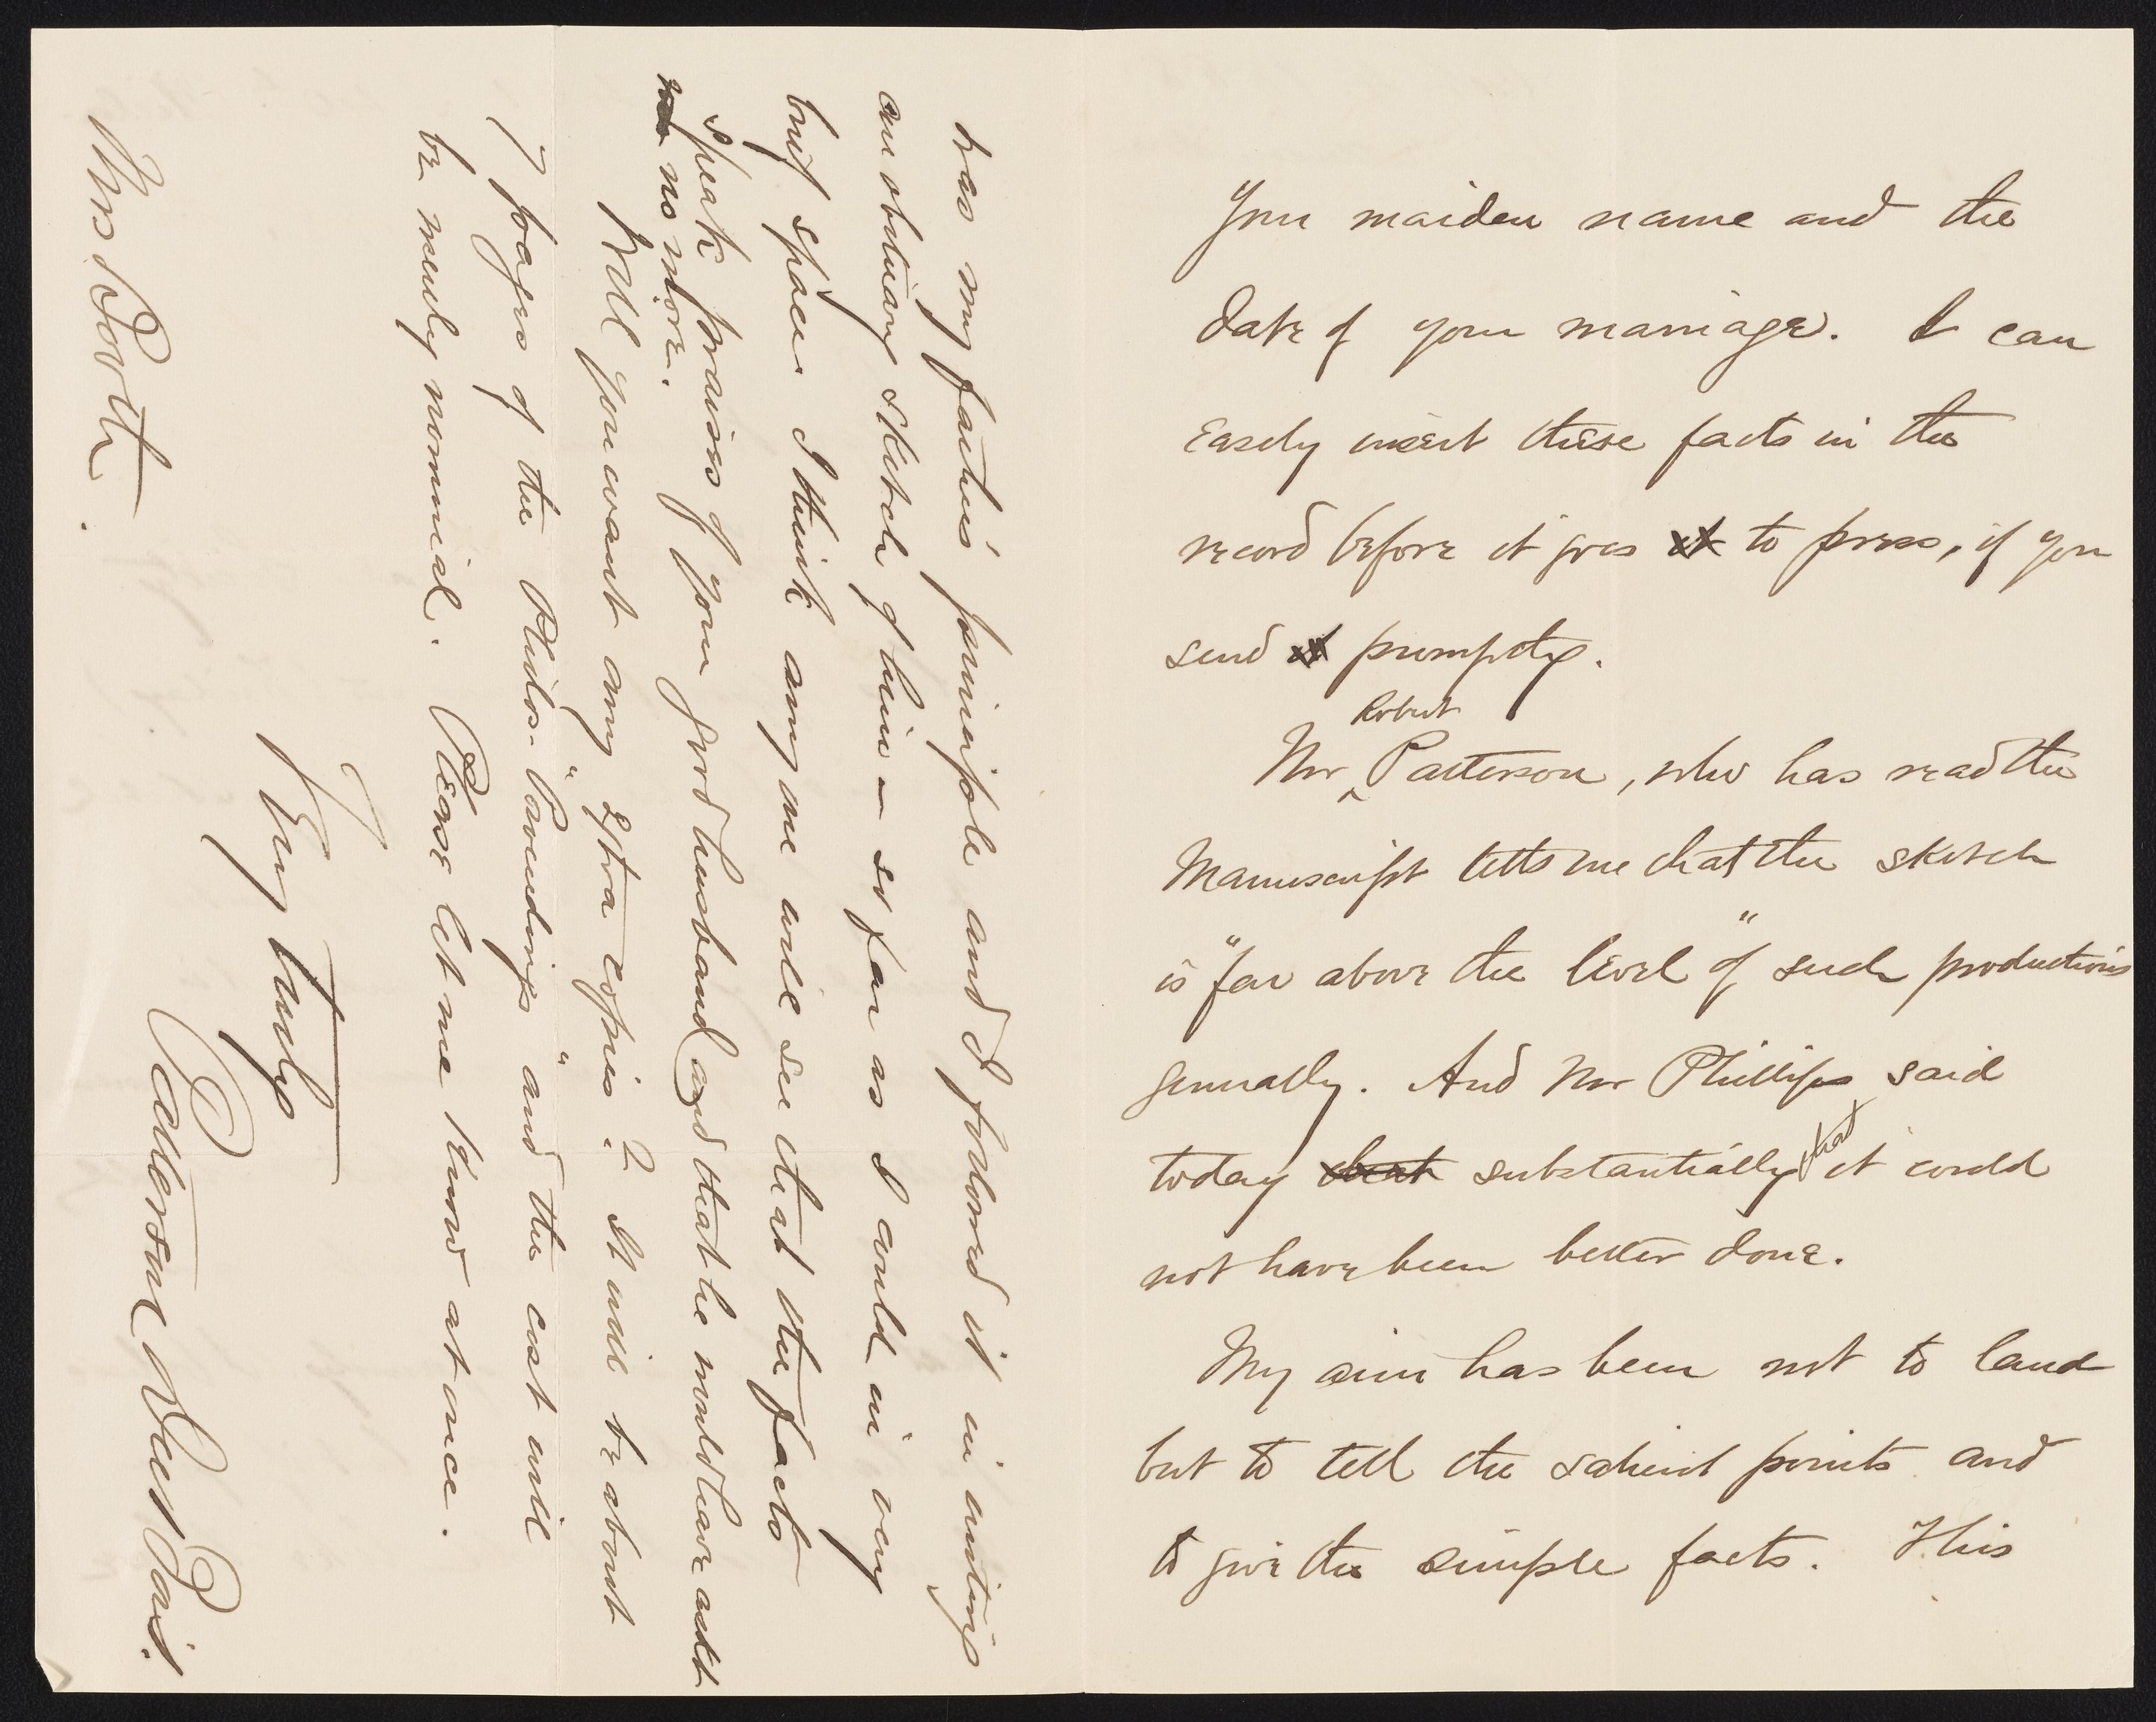 Your maiden name and the
date of your marriage. I can
Easely insert these facts in the
record before it goes it to press, if you
send it promptly.
Robert
Mr ^ Patterson, who has read the
Manuscript tells me that the sketch
is "far above the level" of such productions
generally. And Mr Phillips said
today that substantially that it could
not have been better done.
My aim has been not to laud
but to tell the salient points and
to give the simple facts. This
was my father's principle and I followed it in writing
an obituary sketch of him – so far as I could in very
brief space I think any one will see that the facts
speak praises of your good husband and that he would have asked
no more.
Will you want any Extra copies? It will be about
7 pages of the Philos. "Proceedings" and the cost will
be merely nominal. Please let me know at once.
Very truly
Patterson Du Bois.
Mrs Booth.